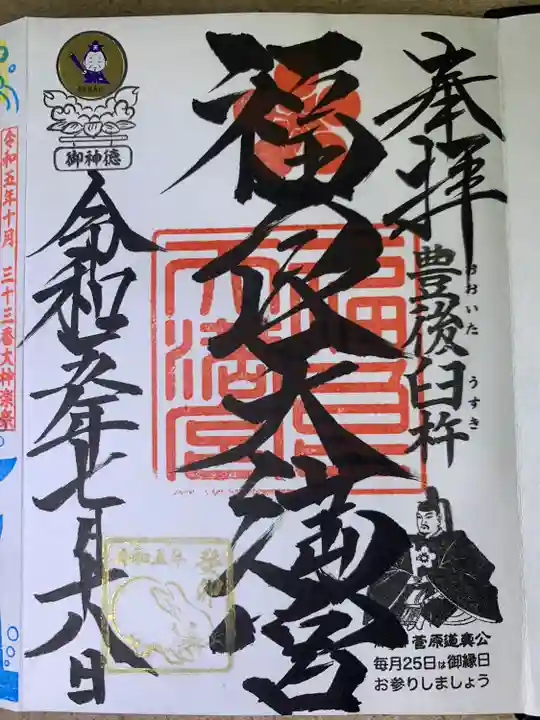 奉拝
豊後臼杵
おおいた
うすき
福良天満宮
令和五年七月十八日
御神徳
令和五年十月 三十三番大神楽祭
令和五年
菅原道真公
毎月25日は御縁日
お参りしましょう